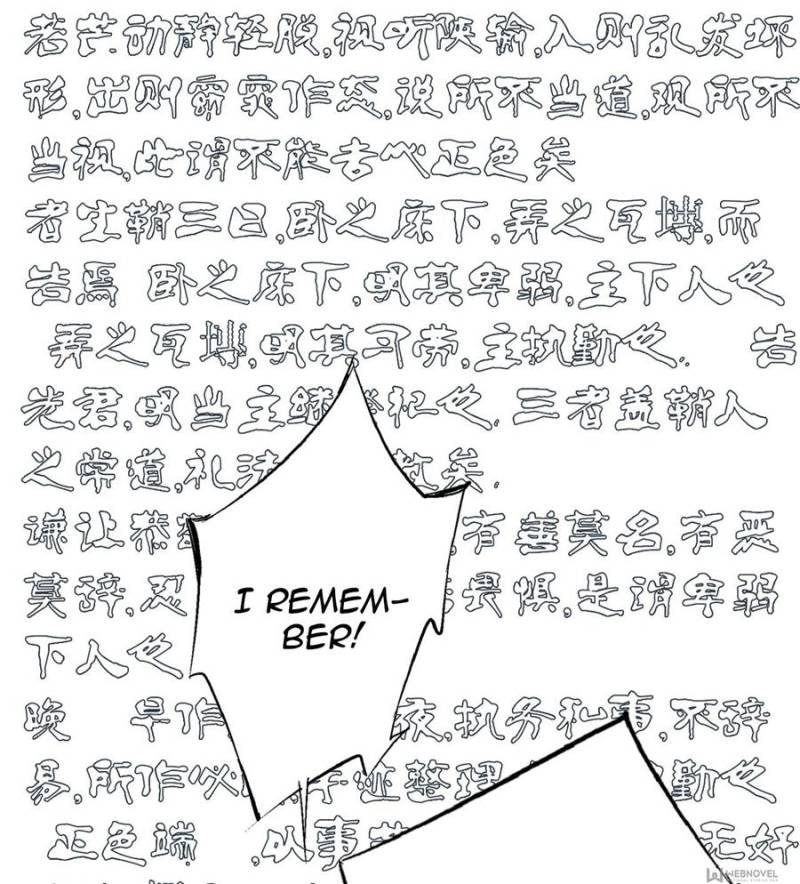 动静轻脱,视听陕输,入则乱发坏
形,出则作态,说所不当道,观所不
当视,此谓不能去心正色矣
者生鞘三日,卧之床下,弄之瓦塼,而
告焉 卧之床下,明其卑弱,主下人也
弄之瓦塼,明其习劳,主执勤也. 告
先君,明当主继祀也. 三者盖鞘人
之常道,礼法矣.
谦让恭,有善莫名,有恶
莫辞,忍畏惧,是谓卑弱
下人也
晚 早作,夜,执务私事,不辞
易,所作必,手迹整理勤也
正色端 ,以事无好
I REMEM-
BER!
WEBNOVEL